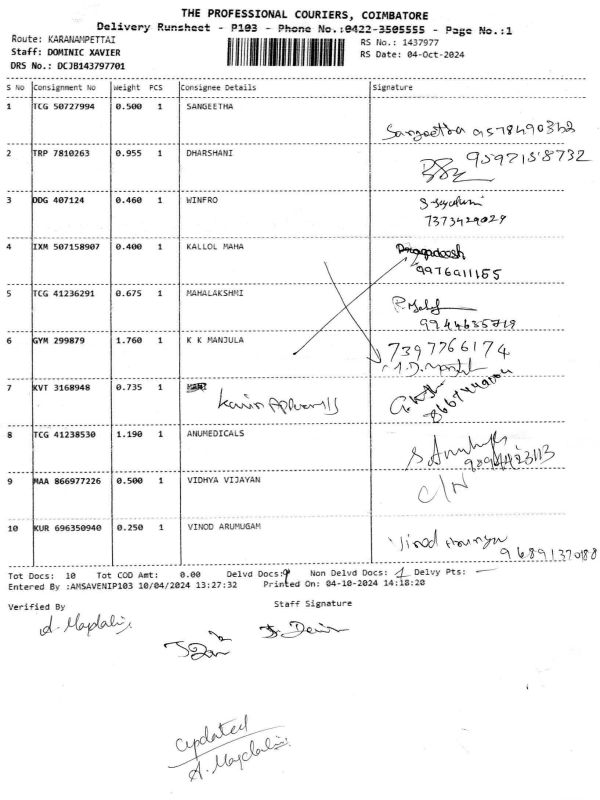 THE PROFESSIONAL COURIERS, COIMBATORE
Delivery Runsheet - P103 - Phone No.:0422-3505555 - Page No.:1
Route: KARANAMPETTAI
RS No.: 1437977
Staff: DOMINIC XAVIER
RS Date: 04-Oct-2024
DRS No.: DCJB143797701
S No Consignment No Weight PCS Consignee Details Signature
1 TCG 50727994 0.500 1 SANGEETHA
Sangeetha 9578490368
2 TRP 7810263 0.955 1 DHARSHANI
9597158732
3 DDG 407124 0.460 1 WINFRO
7373429029
4 IXM 507158907 0.400 1 KALLOL MAHA
9976911155
5 TCG 41236291 0.675 1 MAHALAKSHMI
9944635719
6 GYM 299879 1.760 1 K K MANJULA
7397766174
7 KVT 3168948 0.735 1
8 TCG 41238530 1.190 1 ANUMEDICALS
9894423113
9 MAA 866977226 0.500 1 VIDHYA VIJAYAN
C/N
10 KUR 696350940 0.250 1 VINOD ARUMUGAM
96891370188
Tot Docs: 10 Tot COD Amt: 0.00 Delvd Docs: 9 Non Delvd Docs: 1 Delvy Pts: —
Entered By :AMSAVENIP103 10/04/2024 13:27:32 Printed On: 04-10-2024 14:18:20
Verified By Staff Signature
updated